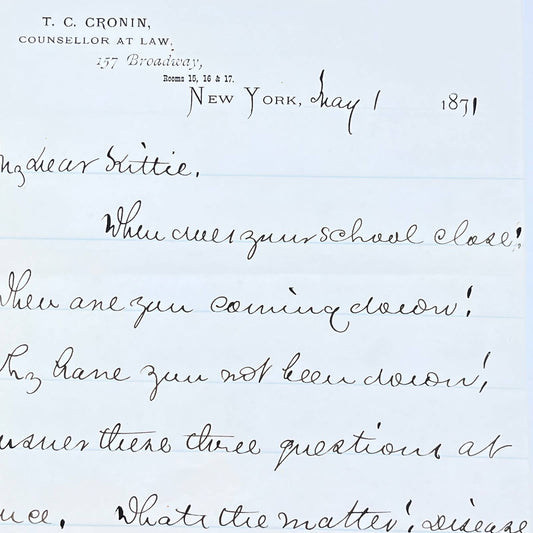 T. C. CRONIN,
COUNSELLOR AT LAW,
157 Broadway,
Rooms 15, 16 & 17.
NEW YORK, May 1 1871
My dear Kittie.
When does your school close?
When are you coming down?
Why have you not been down?
Answer these three questions at
once. What's the matter? disease